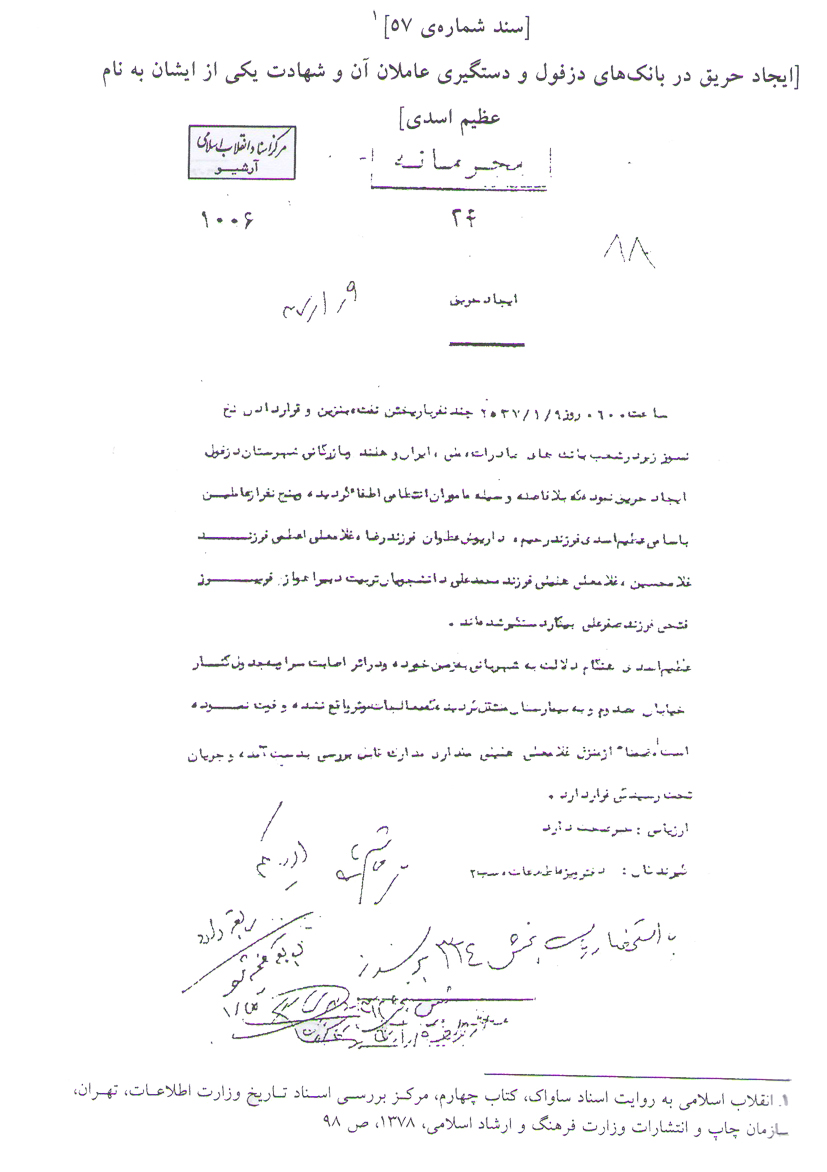 [سند شماره‌ی ۵۷] ۱
[ایجاد حریق در بانک‌های دزفول و دستگیری عاملان آن و شهادت یکی از ایشان به نام
عظیم اسدی]
مرکز اسناد انقلاب اسلامی
آرشیو
محرمانه
۱۰۰۶
۲۴
۸۸
ایجاد حریق
۹ر۱ر۳۷
ساعت ۰۶۰۰ روز ۲۵۳۷/۱/۹ چند نفر با ریختن نفت و بنزین و قرار دادن نخ
نسوز زیر در شعب بانک های صادرات، ملی، ایران و هند و بازرگانی شهرستان دزفول
ایجاد حریق نموده که بلافاصله وسیله ماموران انتظامی اطفاء گردیده و پنج نفر از عاملین
باسامی عظیم اسدی فرزند رحیم، داریوش فرزند رضا، غلامعلی اعظمی فرزنـــد
غلامحسین، غلامعلی فرزند محمدعلی دانشجویان تربیت دبیر اهواز فریبـــرز
فتحی فرزند صفرعلی بیکار دستگیر شده‌اند.
عظیم اسدی هنگام دلالت به شهربانی به زمین خورده و در اثر اصابت سر او به جدول کنار
خیابان مصدوم و به بیمارستان منتقل گردیده که معالجات موثر واقع نشده و فوت نمـوده
است. ضمناً از منزل غلامعلی مقداری مدارک قابل بررسی بدست آمده و جریان
تحت رسیدگی قرار دارد.
ارزیابی: خبر صحت دارد
گیرندگان:
با استحضار ریاست بخش ۳۳۴ برسد
۱. انقلاب اسلامی به روایت اسناد ساواک، کتاب چهارم، مرکـز بررسـی اسـناد تـاریخ وزارت اطلاعـات، تهـران،
سازمان چاپ و انتشارات وزارت فرهنگ و ارشاد اسلامی، ۱۳۷۸، ص ۹۸